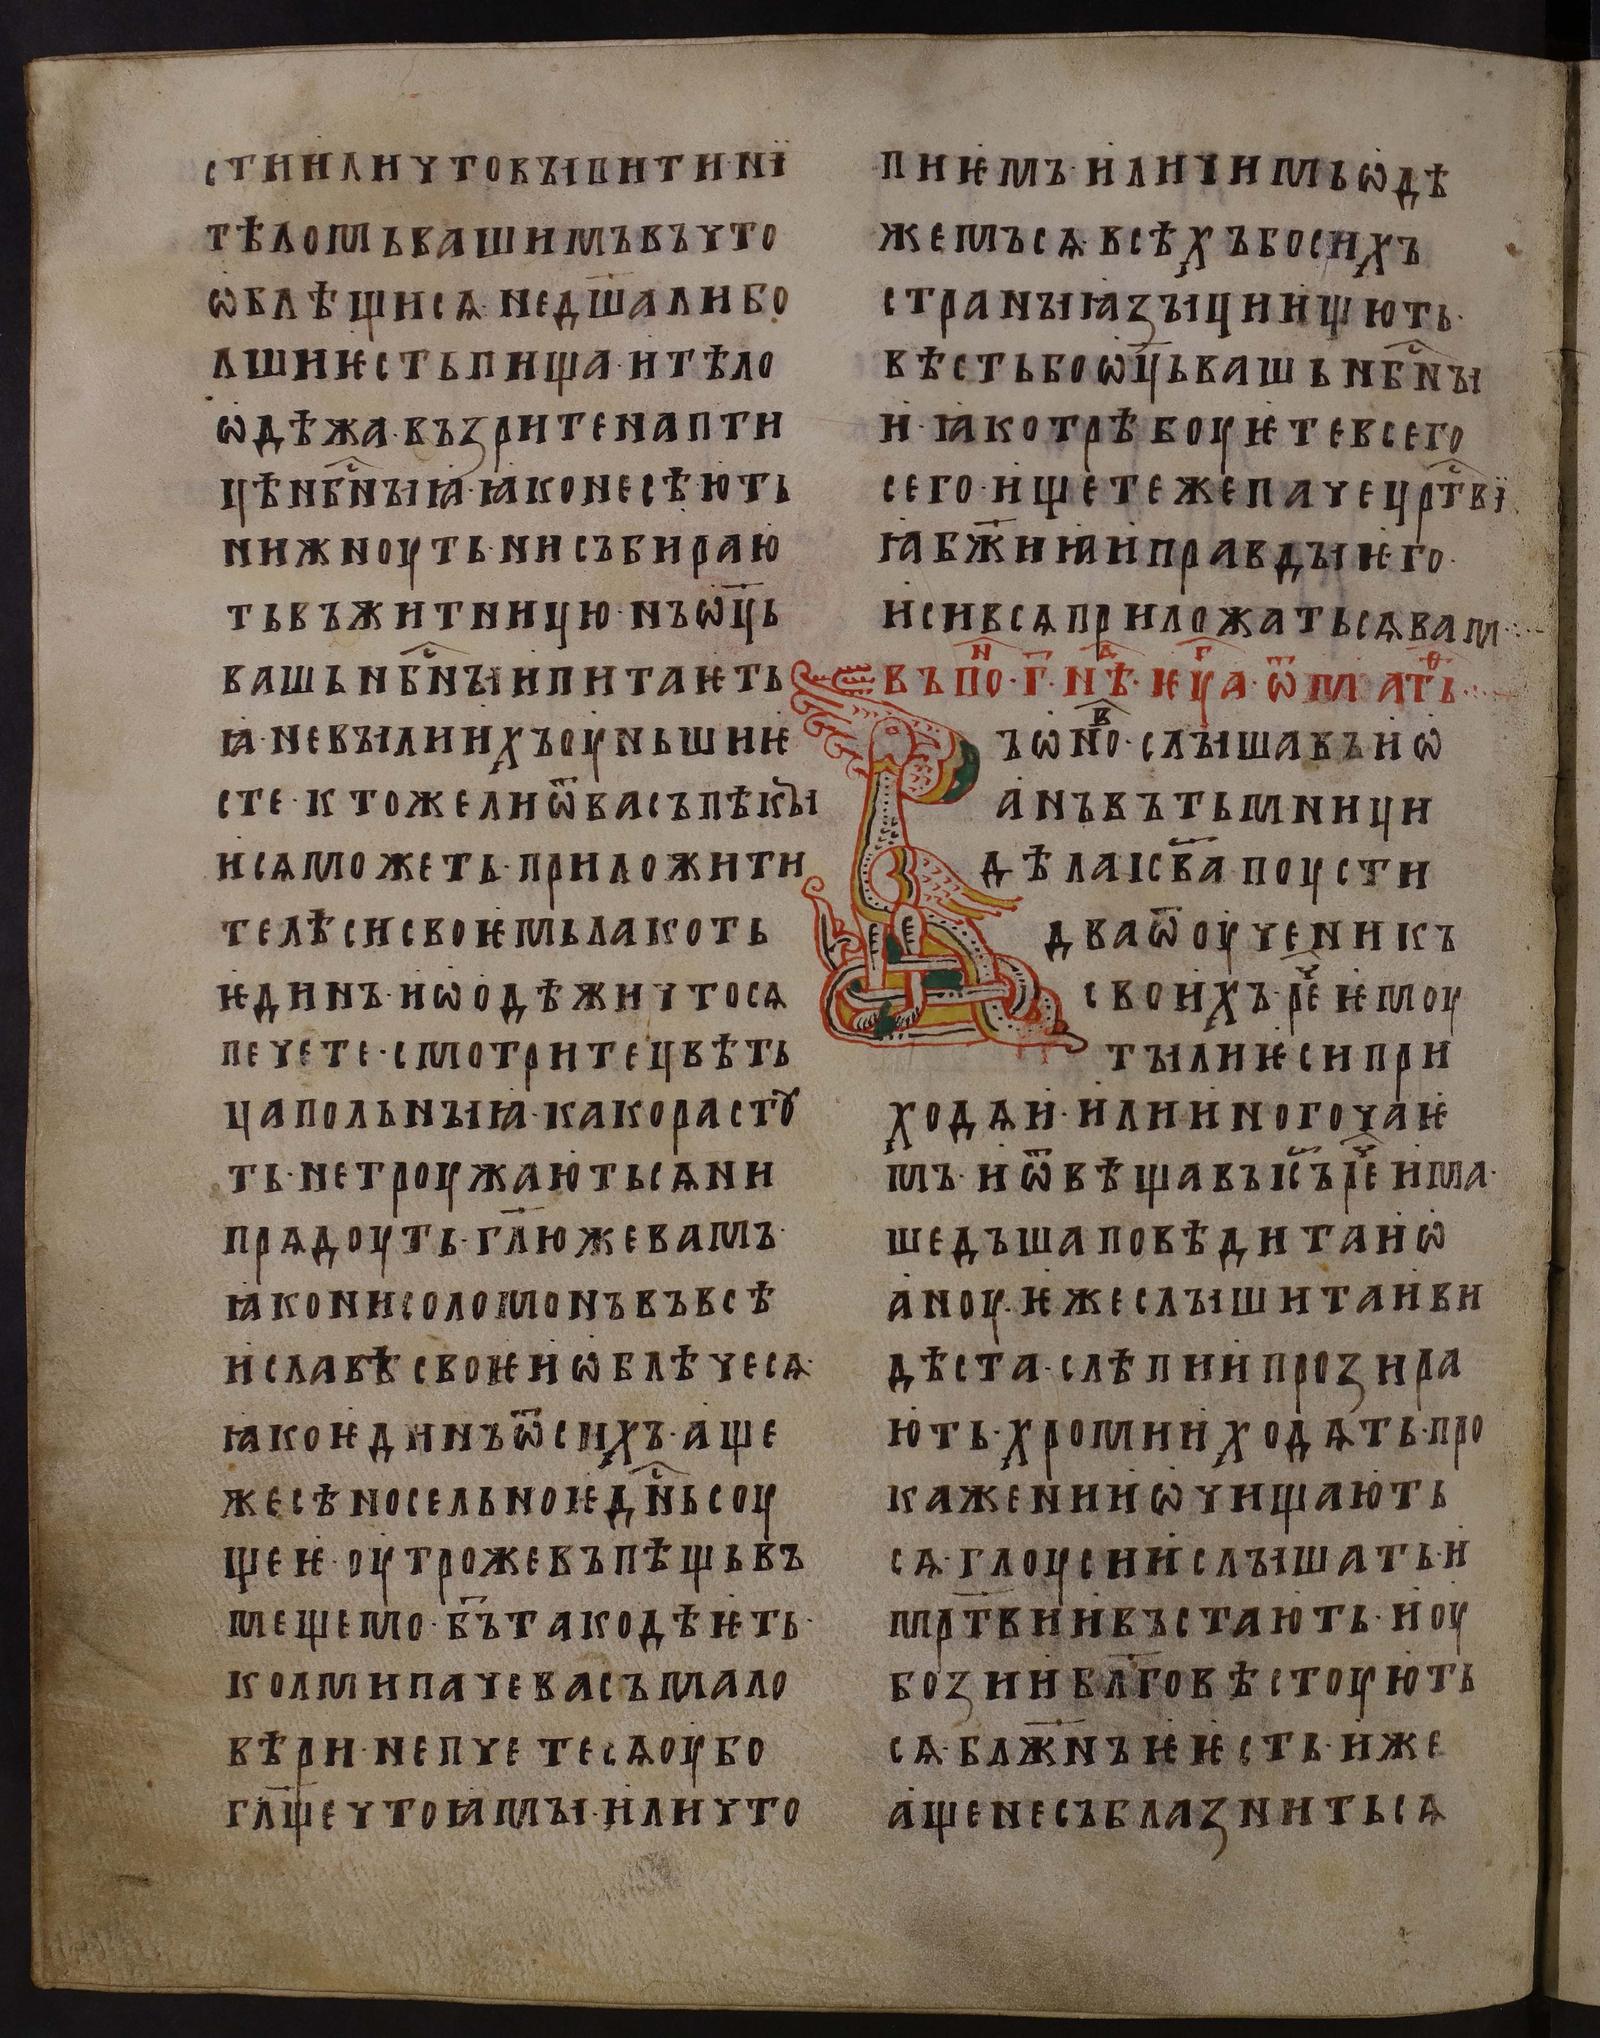 стиилиꙋтовꙑпитини
тѣломьвашимъвъчто
ѡблѣщисѧ·недш҃алибо
лшиѥстьпища·итѣло
ѡдѣжа·въꙁритенапти
цѣнбⷭ҇нꙑꙗ·ꙗконесѣють
нижноуть·нисъбираю
тьвъжитницю·нъѡц҃ь
вашьнбⷭ҇нꙑипитаѥть
ꙗ·невꙑлиихъоуньшиѥ
сте·ктожелиѿвасъпѣкꙑ
исѧможеть·приложити
телѣсисвоѥмьлакоть
ѥдинъ·иѡодѣжичтосѧ
печете·смотритецвѣть
цапольнꙑꙗ·какорастꙋ
ть·нетроужаютьсѧни
прѧдоуть·гл҃южевамъ·
ꙗконисоломонъвъвсѣ
иславѣсвоѥиѡблѣчесѧ·
ꙗкоѥдинъѿсихъ·аще
жесѣносельноѥдн҇ьсоу
щеѥ·оутрожевъпѣщьвъ
мещемо·бъ҃такодѣѥть·
колмипачевасъмало
вѣри·непчетесѧоубо
гл҃щечтоꙗмꙑ·иличто
пиѥмъ·иличимьѡдѣ
жемъсѧ·всѣхъбосихъ
странꙑꙗꙁꙑциищють·
вѣстьбоѡц҃ьвашьнбⷭ҇нꙑ
и·ꙗкотрѣбоуѥтевсего
сего·ищетежепачецрⷭ҇твї
ꙗбж҃иꙗиправдꙑѥго·
исивсѧприложатьсѧвам
въпоⷩ҇·г҃·нѣⷣ·ѥуⷢ҇а·ѿматⷴ҇ь·
ъѡноⷡ҇·слꙑшавъиѡ
анъвътьмници
дѣлаісв҃апоусти
дваѿоученикъ
своихъ·реⷱ҇ѥмоу
тꙑлиѥсипри
ходѧи·илииногочаѥ
мъ·иѿвѣщавъіс҃ъреⷱ҇има·
шедъшаповѣдитаиѡ
аноу·ѥжеслꙑшитаиви
дѣста·слѣпиипроꙁира
ють·хромииходѧть·про
каженииѡчищають
сѧ·глоусиислꙑшать·и
мрт҃виивъстають·иоу
боꙁиибл҃говѣстоують
сѧ·блж҃нъѥѥсть·иже
ащенесъблаꙁнитьсѧ